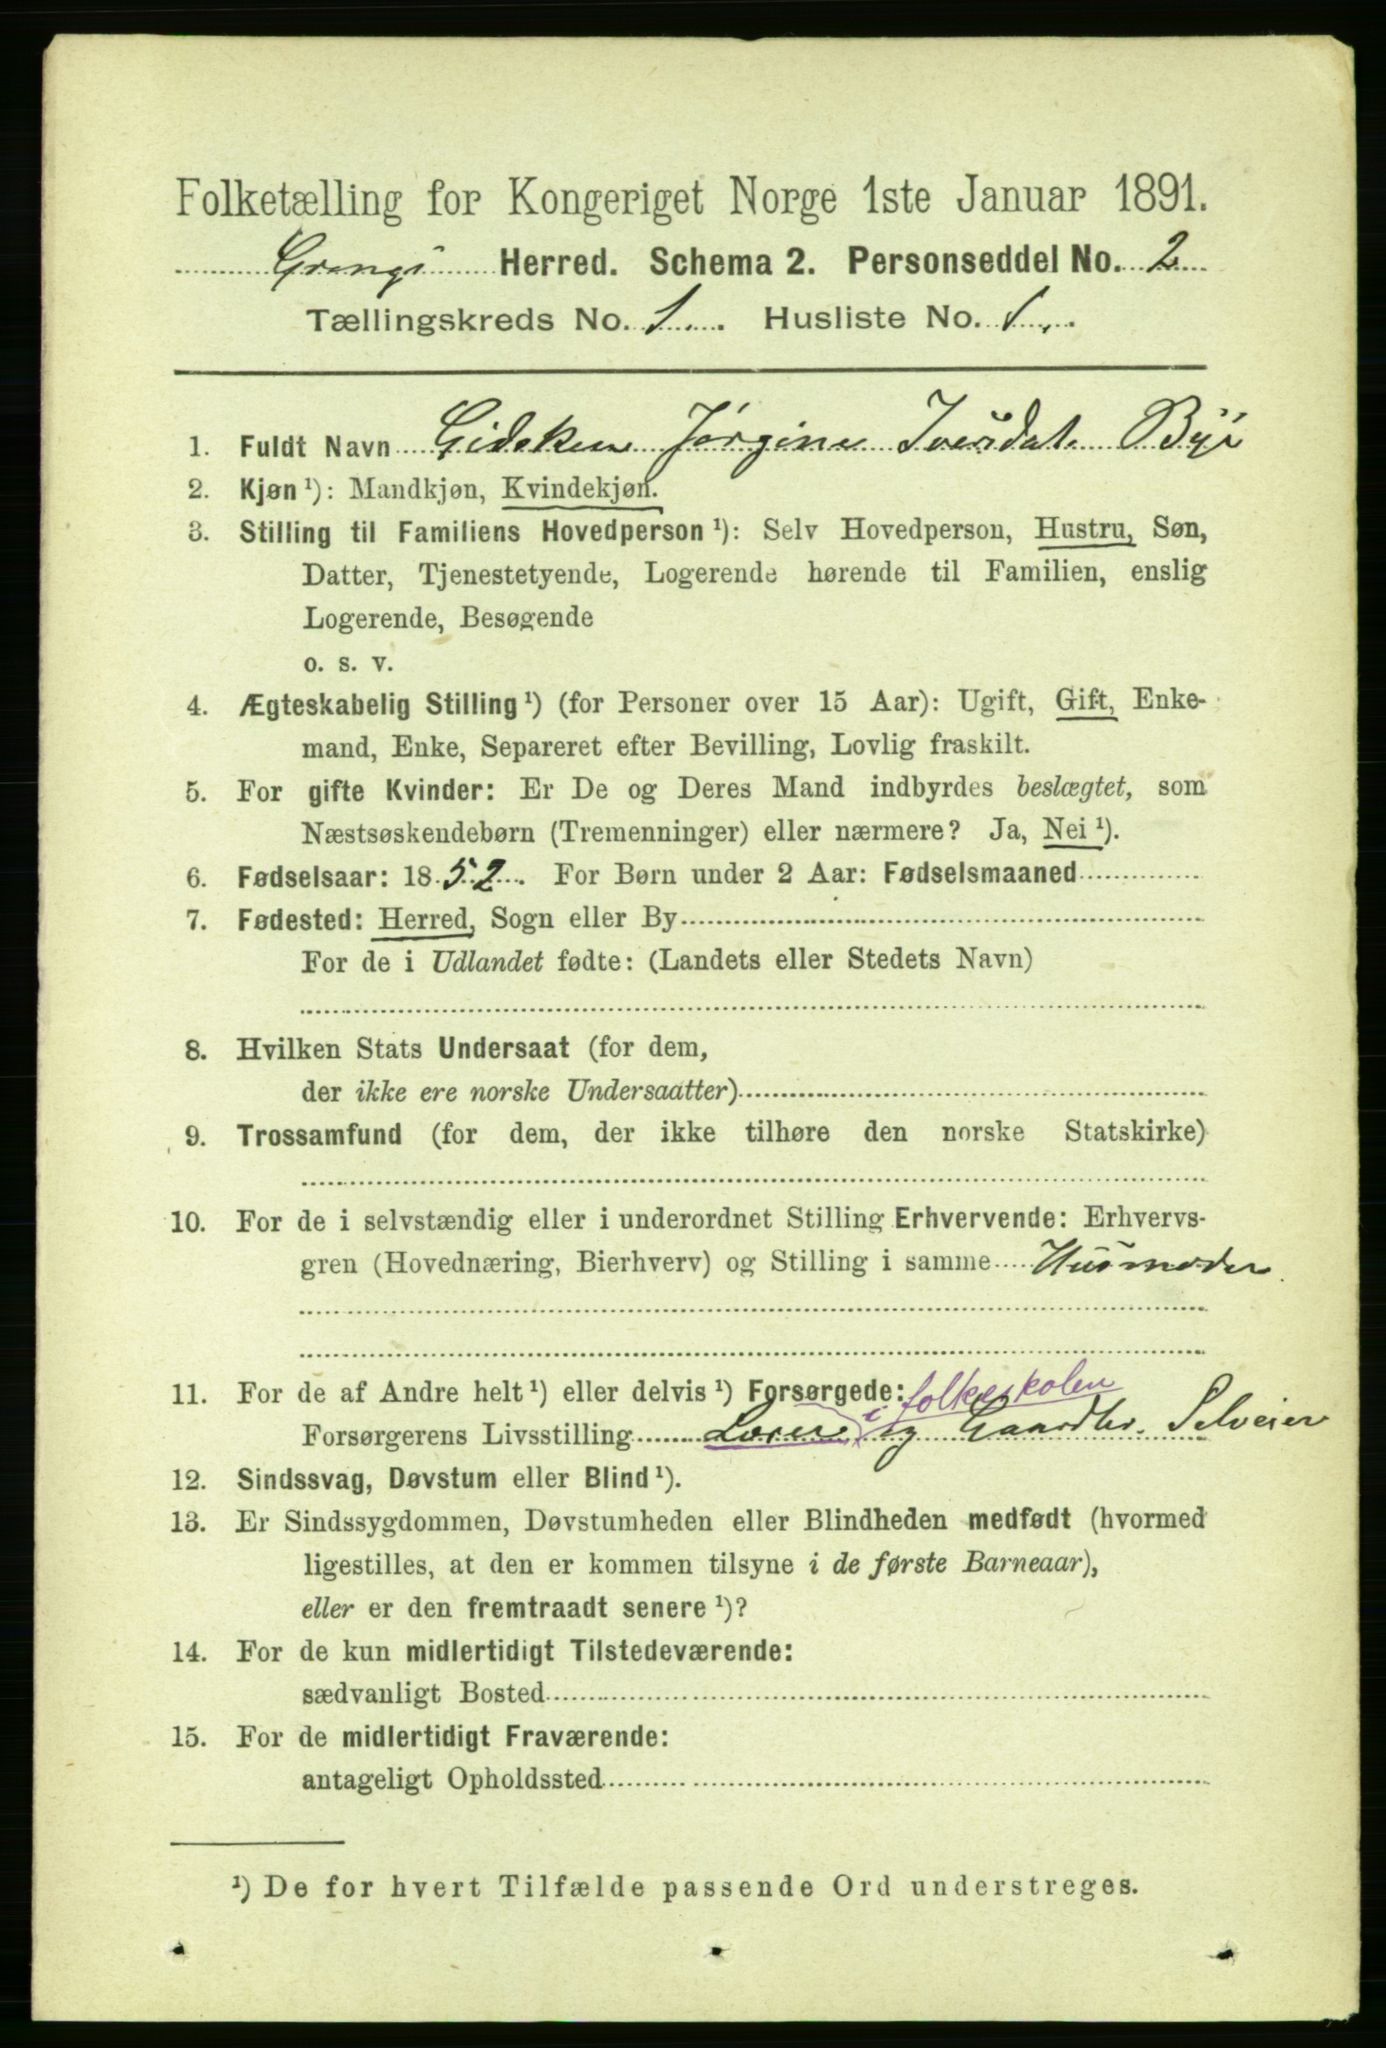 Folketælling for Kongeriget Norge 1ste Januar 1891.
Herred. Schema 2. Personseddel No. 2
Tællingskreds No. 1. Husliste No. 1.
1. Fuldt Navn Gidsken Jørgine Iversdat. Bye
2. Kjøn ¹): Mandkjøn, Kvindekjøn.
3. Stilling til Familiens Hovedperson ¹): Selv Hovedperson, Hustru, Søn,
Datter, Tjenestetyende, Logerende hørende til Familien, enslig
Logerende, Besøgende
o. s. v.
4. Ægteskabelig Stilling ¹) (for Personer over 15 Aar): Ugift, Gift, Enke-
mand, Enke, Separeret efter Bevilling, Lovlig fraskilt.
5. For gifte Kvinder: Er De og Deres Mand indbyrdes beslægtet, som
Næstsøskendebørn (Tremenninger) eller nærmere? Ja, Nei ¹).
6. Fødselsaar: 1852. For Børn under 2 Aar: Fødselsmaaned
7. Fødested: Herred, Sogn eller By
For de i Udlandet fødte: (Landets eller Stedets Navn)
8. Hvilken Stats Undersaat (for dem,
der ikke ere norske Undersaatter)
9. Trossamfund (for dem, der ikke tilhøre den norske Statskirke)
10. For de i selvstændig eller i underordnet Stilling Erhvervende: Erhvervs-
gren (Hovednæring, Bierhverv) og Stilling i samme Husmoder
11. For de af Andre helt ¹) eller delvis ¹) Forsørgede: i folkeskolen
Forsørgerens Livsstilling Lærer og Gaardbr. Selveier
12. Sindssvag, Døvstum eller Blind ¹).
13. Er Sindssygdommen, Døvstumheden eller Blindheden medfødt (hvormed
ligestilles, at den er kommen tilsyne i de første Barneaar),
eller er den fremtraadt senere ¹)?
14. For de kun midlertidigt Tilstedeværende:
sædvanligt Bosted
15. For de midlertidigt Fraværende:
antageligt Opholdssted
¹) De for hvert Tilfælde passende Ord understreges.